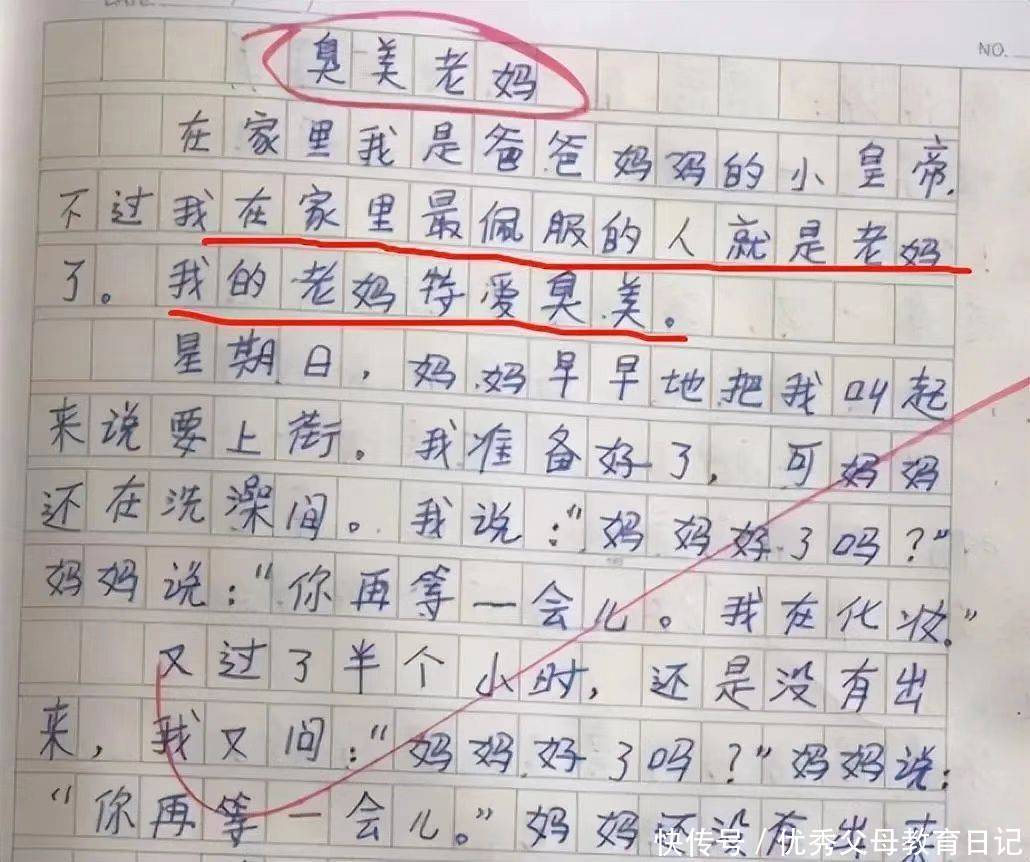 NO.
臭美老妈
在家里我是爸爸妈妈的小皇帝,
不过我在家里最佩服的人就是老妈
了。我的老妈特爱臭美。
星期日,妈妈早早地把我叫起
来说要上街。我准备好了,可妈妈
还在洗澡间。我说:“妈妈好了吗?”
妈妈说:“你再等一会儿。我在化妆。”
又过了半个小时,还是没有出
来,我又问:“妈妈好了吗?”妈妈说:
“你再等一会儿。”妈妈还没有出来
快传号/优秀父母教育日记